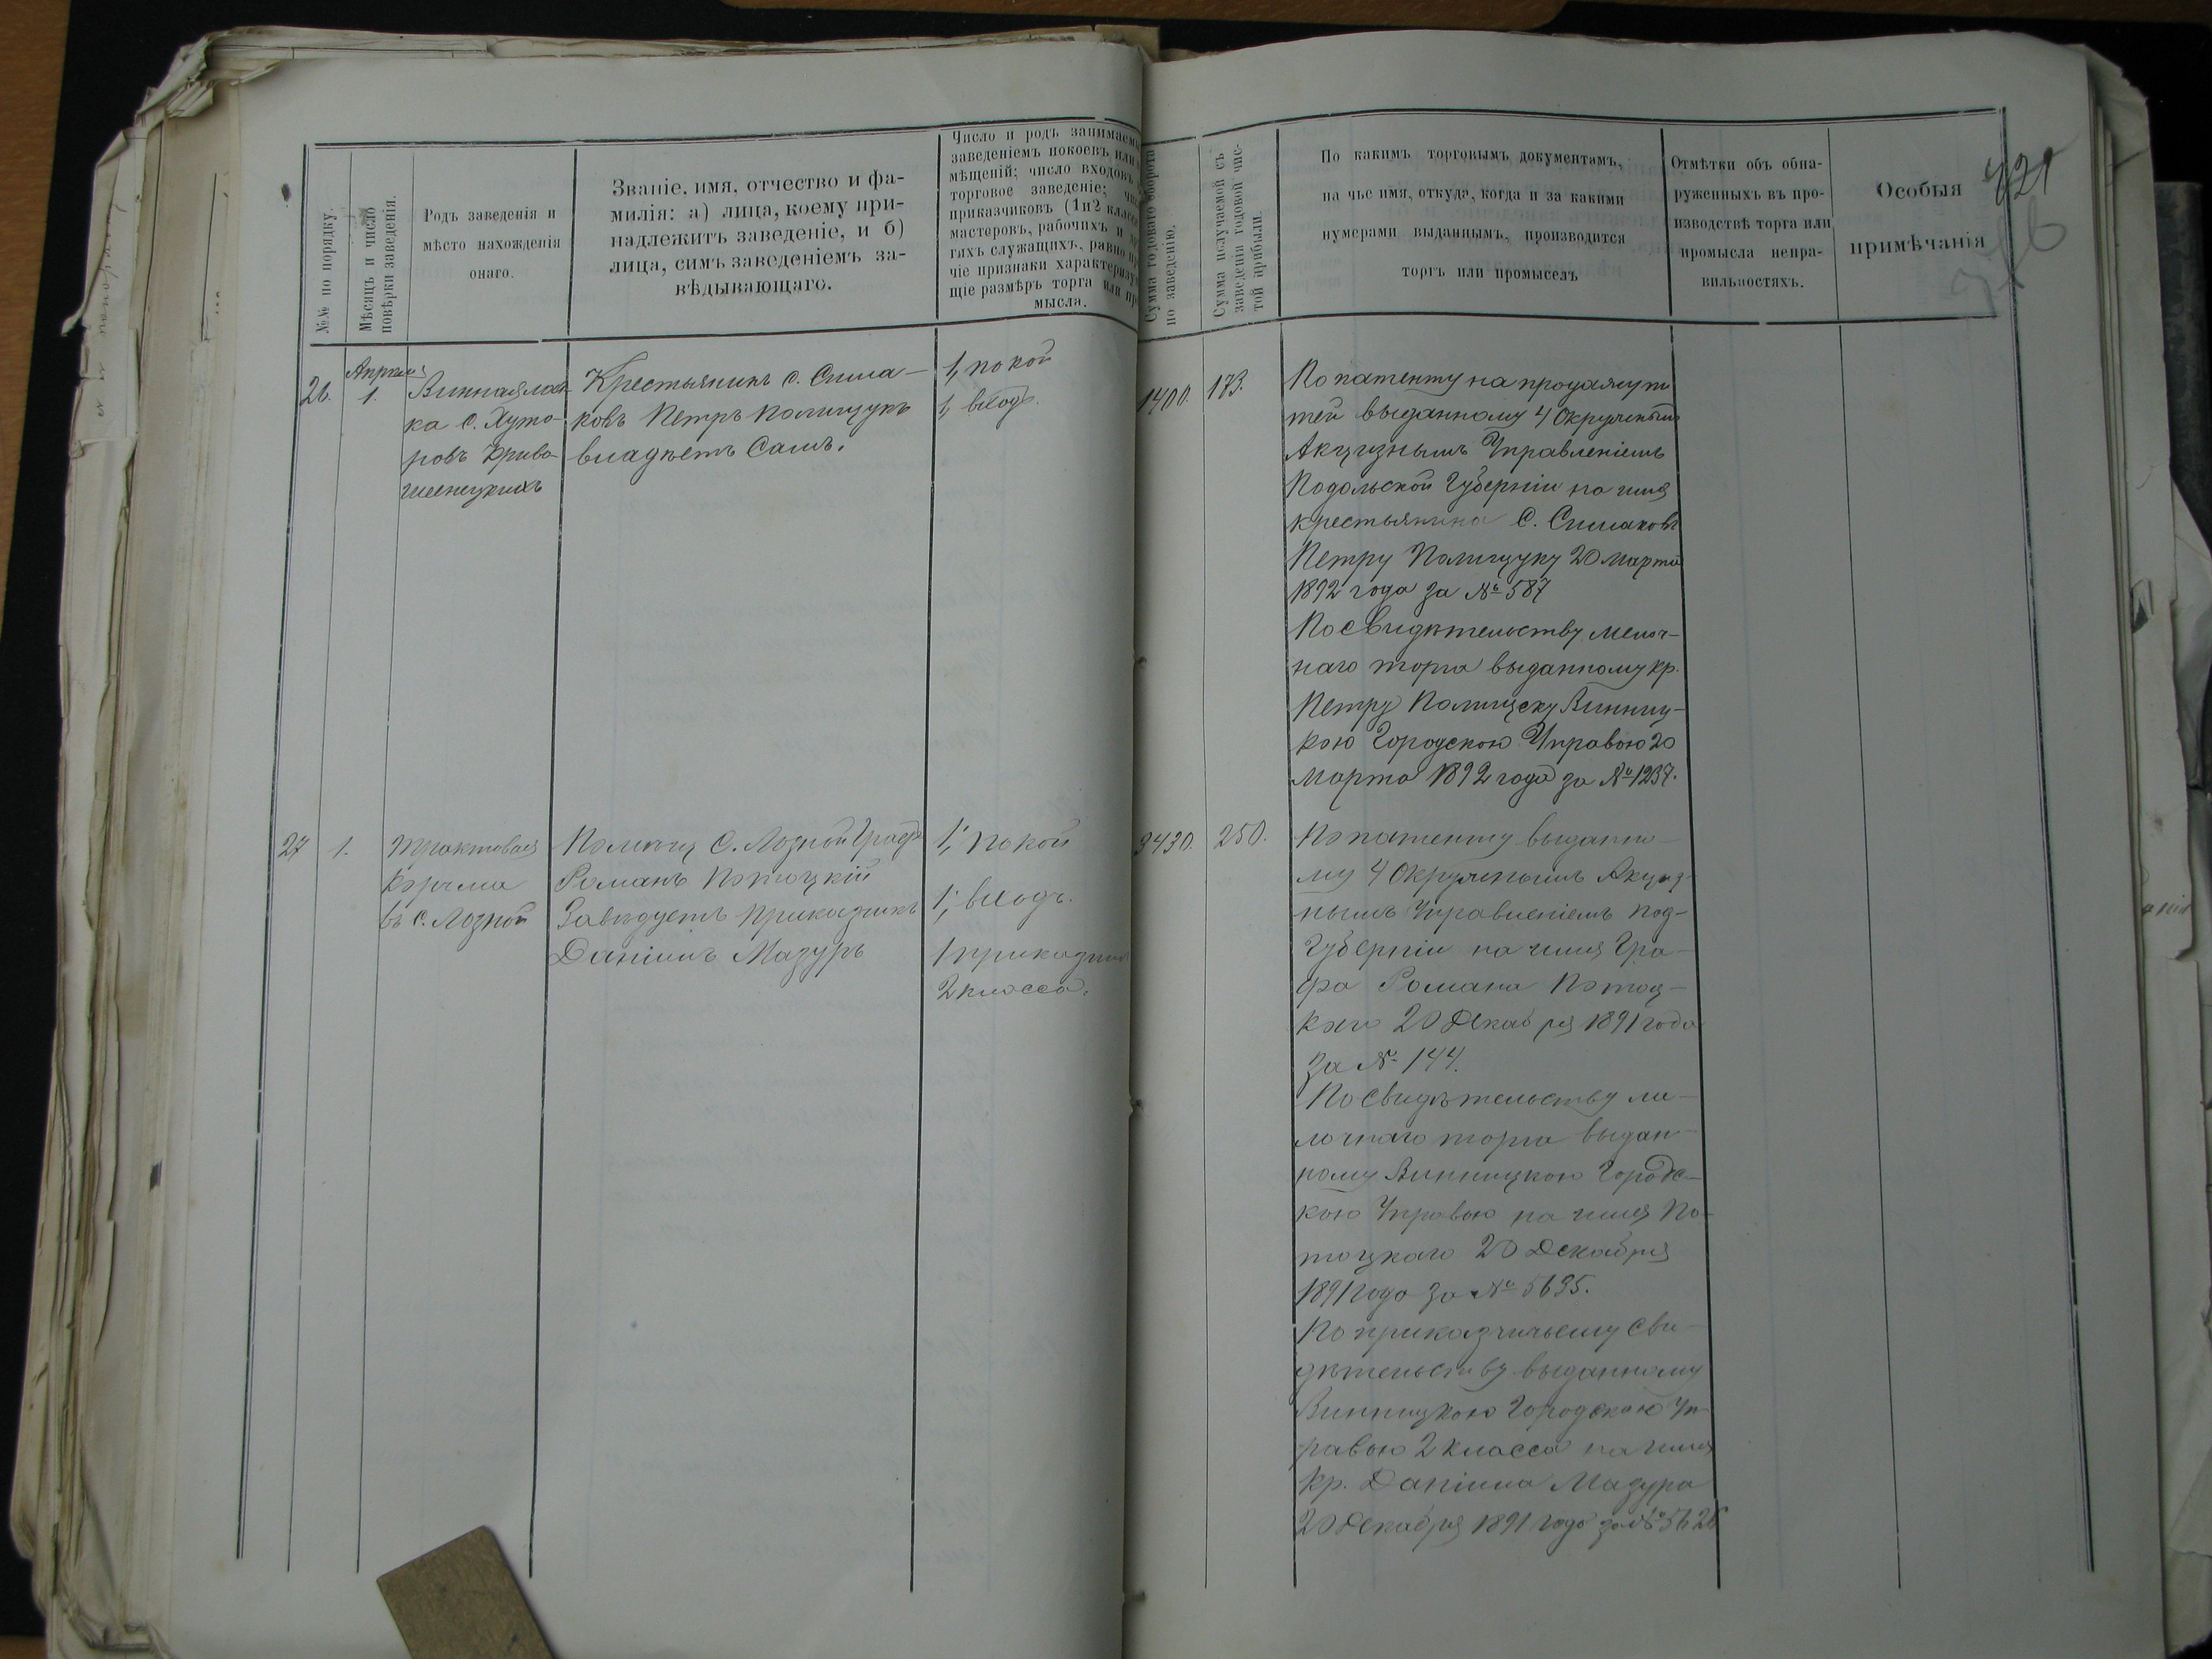 №№ по порядку.
Мѣсяцъ и число
повѣрки заведенія.
Родъ заведенія и
мѣсто нахожденія
онаго.
Званіе, имя, отчество и фа-
милія: а) лица, коему при-
надлежитъ заведеніе, и б)
лица, симъ заведеніемъ за-
вѣдывающаго.
Число и родъ занимаемы
заведеніемъ покоевъ или
мѣщеній; число входовъ
торговое заведеніе;
приказчиковъ (1 и 2 класс
мастеровъ, рабочихъ и
гихъ служащихъ, равно
чіе признаки характеризу
щіе размѣръ торга или пр
мысла.
Сумма годоваго оборота
по заведенію.
Сумма получаемой съ
заведенія годовой чис-
той прибыли.
По какимъ торговымъ документамъ,
на чье имя, откуда, когда и за какими
нумерами выданнымъ, производится
торгъ или промыселъ
Отмѣтки объ обна-
руженныхъ въ про-
изводствѣ торга или
промысла непра-
вильностяхъ.
Особыя
примѣчанія
421
26.
Апрѣля
1.
Винная лав
ка с. Хуто-
ровъ Криво-
шенецкихъ
Крестьянинъ с. Спила-
ковъ Петръ Полищукъ
владѣетъ Самъ.
1, покой
1, входъ.
1400.
173.
По патенту на продажу пи
тей выданному 4 Окружнымъ
Акцизнымъ Управленіемъ
Подольской Губерніи на имя
крестьянина С. Спилаковъ
Петру Полищуку 20 марта
1892 года за № 587
По свидѣтельству мелоч-
наго торга выданному кр.
Петру Полищску Винниц-
кою Городскою Управою 20
Марта 1892 года за № 1237.
27
1.
Трактовая
Корчма
въ с. Лозной
Помѣщ С. Лозной Графъ
Романъ Потоцкій
Завѣдуетъ Приказчикъ
Даніилъ Мазуръ
1, покой
1, входъ.
1 приказчик
2 класса.
3430.
250.
По патенту выданно-
му 4 Окружнымъ Акциз-
нымъ Управленіемъ Под-
Губерніи на имя Гра-
фа Романа Потоц-
каго 20 Декабря 1891 года
за № 144.
По свидѣтельству ме-
лочнаго торга выдан-
ному Винницкою Городс-
кою Управою на имя По-
тоцкаго 20 Декабря
1891 года за № 5635.
По приказчичьему сви-
дѣтельству выданному
Винницкою Городскою Уп-
равою 2 класса на имя
Кр. Даніила Мазура
20 Декабря 1891 года за №